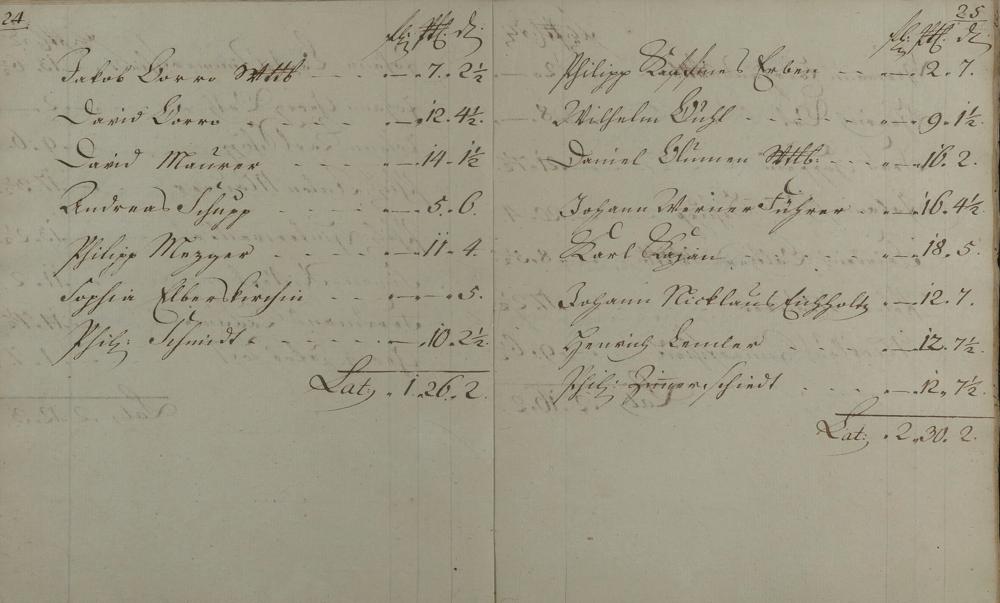 24
fl: Btz: d:
Jakob Corro Wttb - - - — . 7. 2½
David Corro - - - - . — . 12. 4½.
David Maurer - - - . — . 14. 1½
Andreas Schupp - - - - . — . 5. 6.
Philipp Mezger - - - . — . 11. 4.
Sophia Elberskirchin - - . — . — . 5.
Phil: Schmidt - - - - - . — . 10. 2½.
Lat: . 1. 26. 2.
25
fl: Btz: d:
Philipp Erben - - . — . 2. 7.
Wilhelm Gühl - - - - - . — . 9. 1½.
Daniel Blumen Wttb: - - - . — . 16. 2.
Johann Werner Führer - . — . 16. 4½.
Karl Cajan - - - . — . 18. 5.
Johann Nicklaus Eichholtz . — . 12. 7.
Henrich Lemler - - - . — . 12. 7½
Phil: Zimerschiedt - - - . — . 12. 7½.
Lat: . 2. 30. 2.